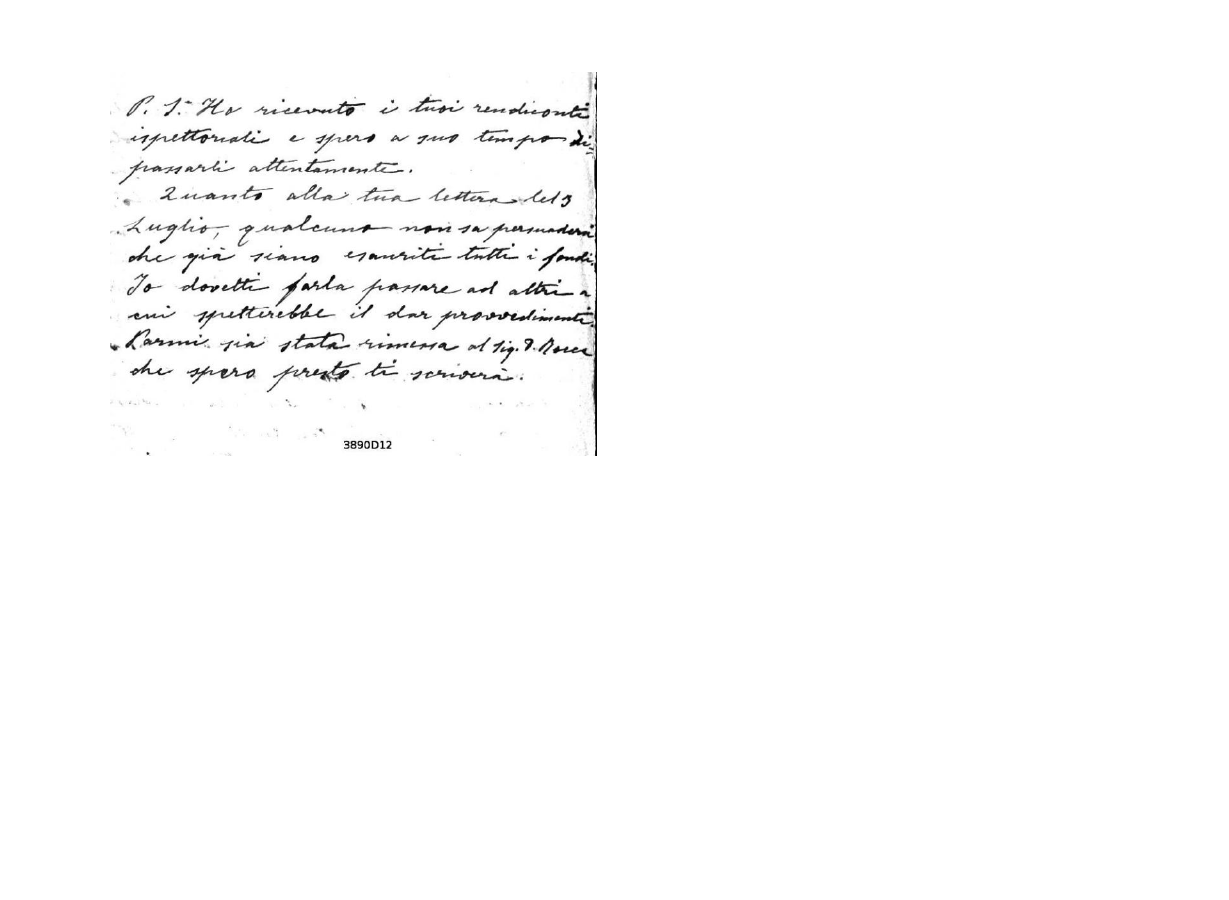 P. S. Ho ricevuto i tuoi rendiconti
ispettoriali e spero a suo tempo di
passarli attentamente.
Quanto alla tua lettera del 3
Luglio, qualcuno non sa persuadersi
che già siano esauriti tutti i fondi.
Io dovetti farla passare ad altri a
cui spetterebbe il dar provvedimenti.
Parmi sia stata rimessa al Sig. D. Rocca
che spero presto ti scriverà.
3890D12